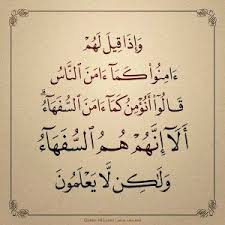 وَإِذَا قِيلَ لَهُمْ
ءَامِنُوا۟ كَمَآ ءَامَنَ ٱلنَّاسُ
قَالُوٓا۟ أَنُؤْمِنُ كَمَآ ءَامَنَ ٱلسُّفَهَآءُ ۗ
أَلَآ إِنَّهُمْ هُمُ ٱلسُّفَهَآءُ
وَلَٰكِن لَّا يَعْلَمُونَ